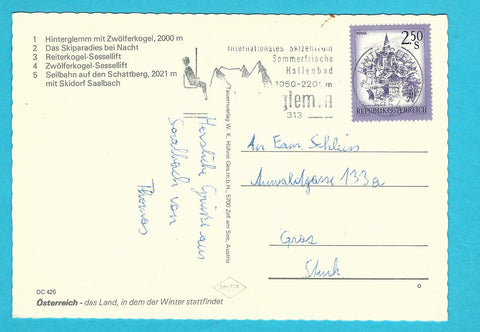 1 Hinterglemm mit Zwölferkogel, 2000 m
2 Das Skiparadies bei Nacht
3 Reiterkogel-Sessellift
4 Zwölferkogel-Sessellift
5 Seilbahn auf den Schattberg, 2021 m
mit Skidorf Saalbach
Internationales Skizentrum
Sommerfrische
Hallenbad
1050-2201 m
313
2,50
S
REPUBLIK ÖSTERREICH
Tauernverlag W. K. Hühne Ges.m.b.H., 5700 Zell am See, Austria
Herzliche Grüße aus
Saalbach von
Thomas
An Fam. Schlein
Auwaldgasse 133a
Graz
OC 426
Österreich - das Land, in dem der Winter stattfindet